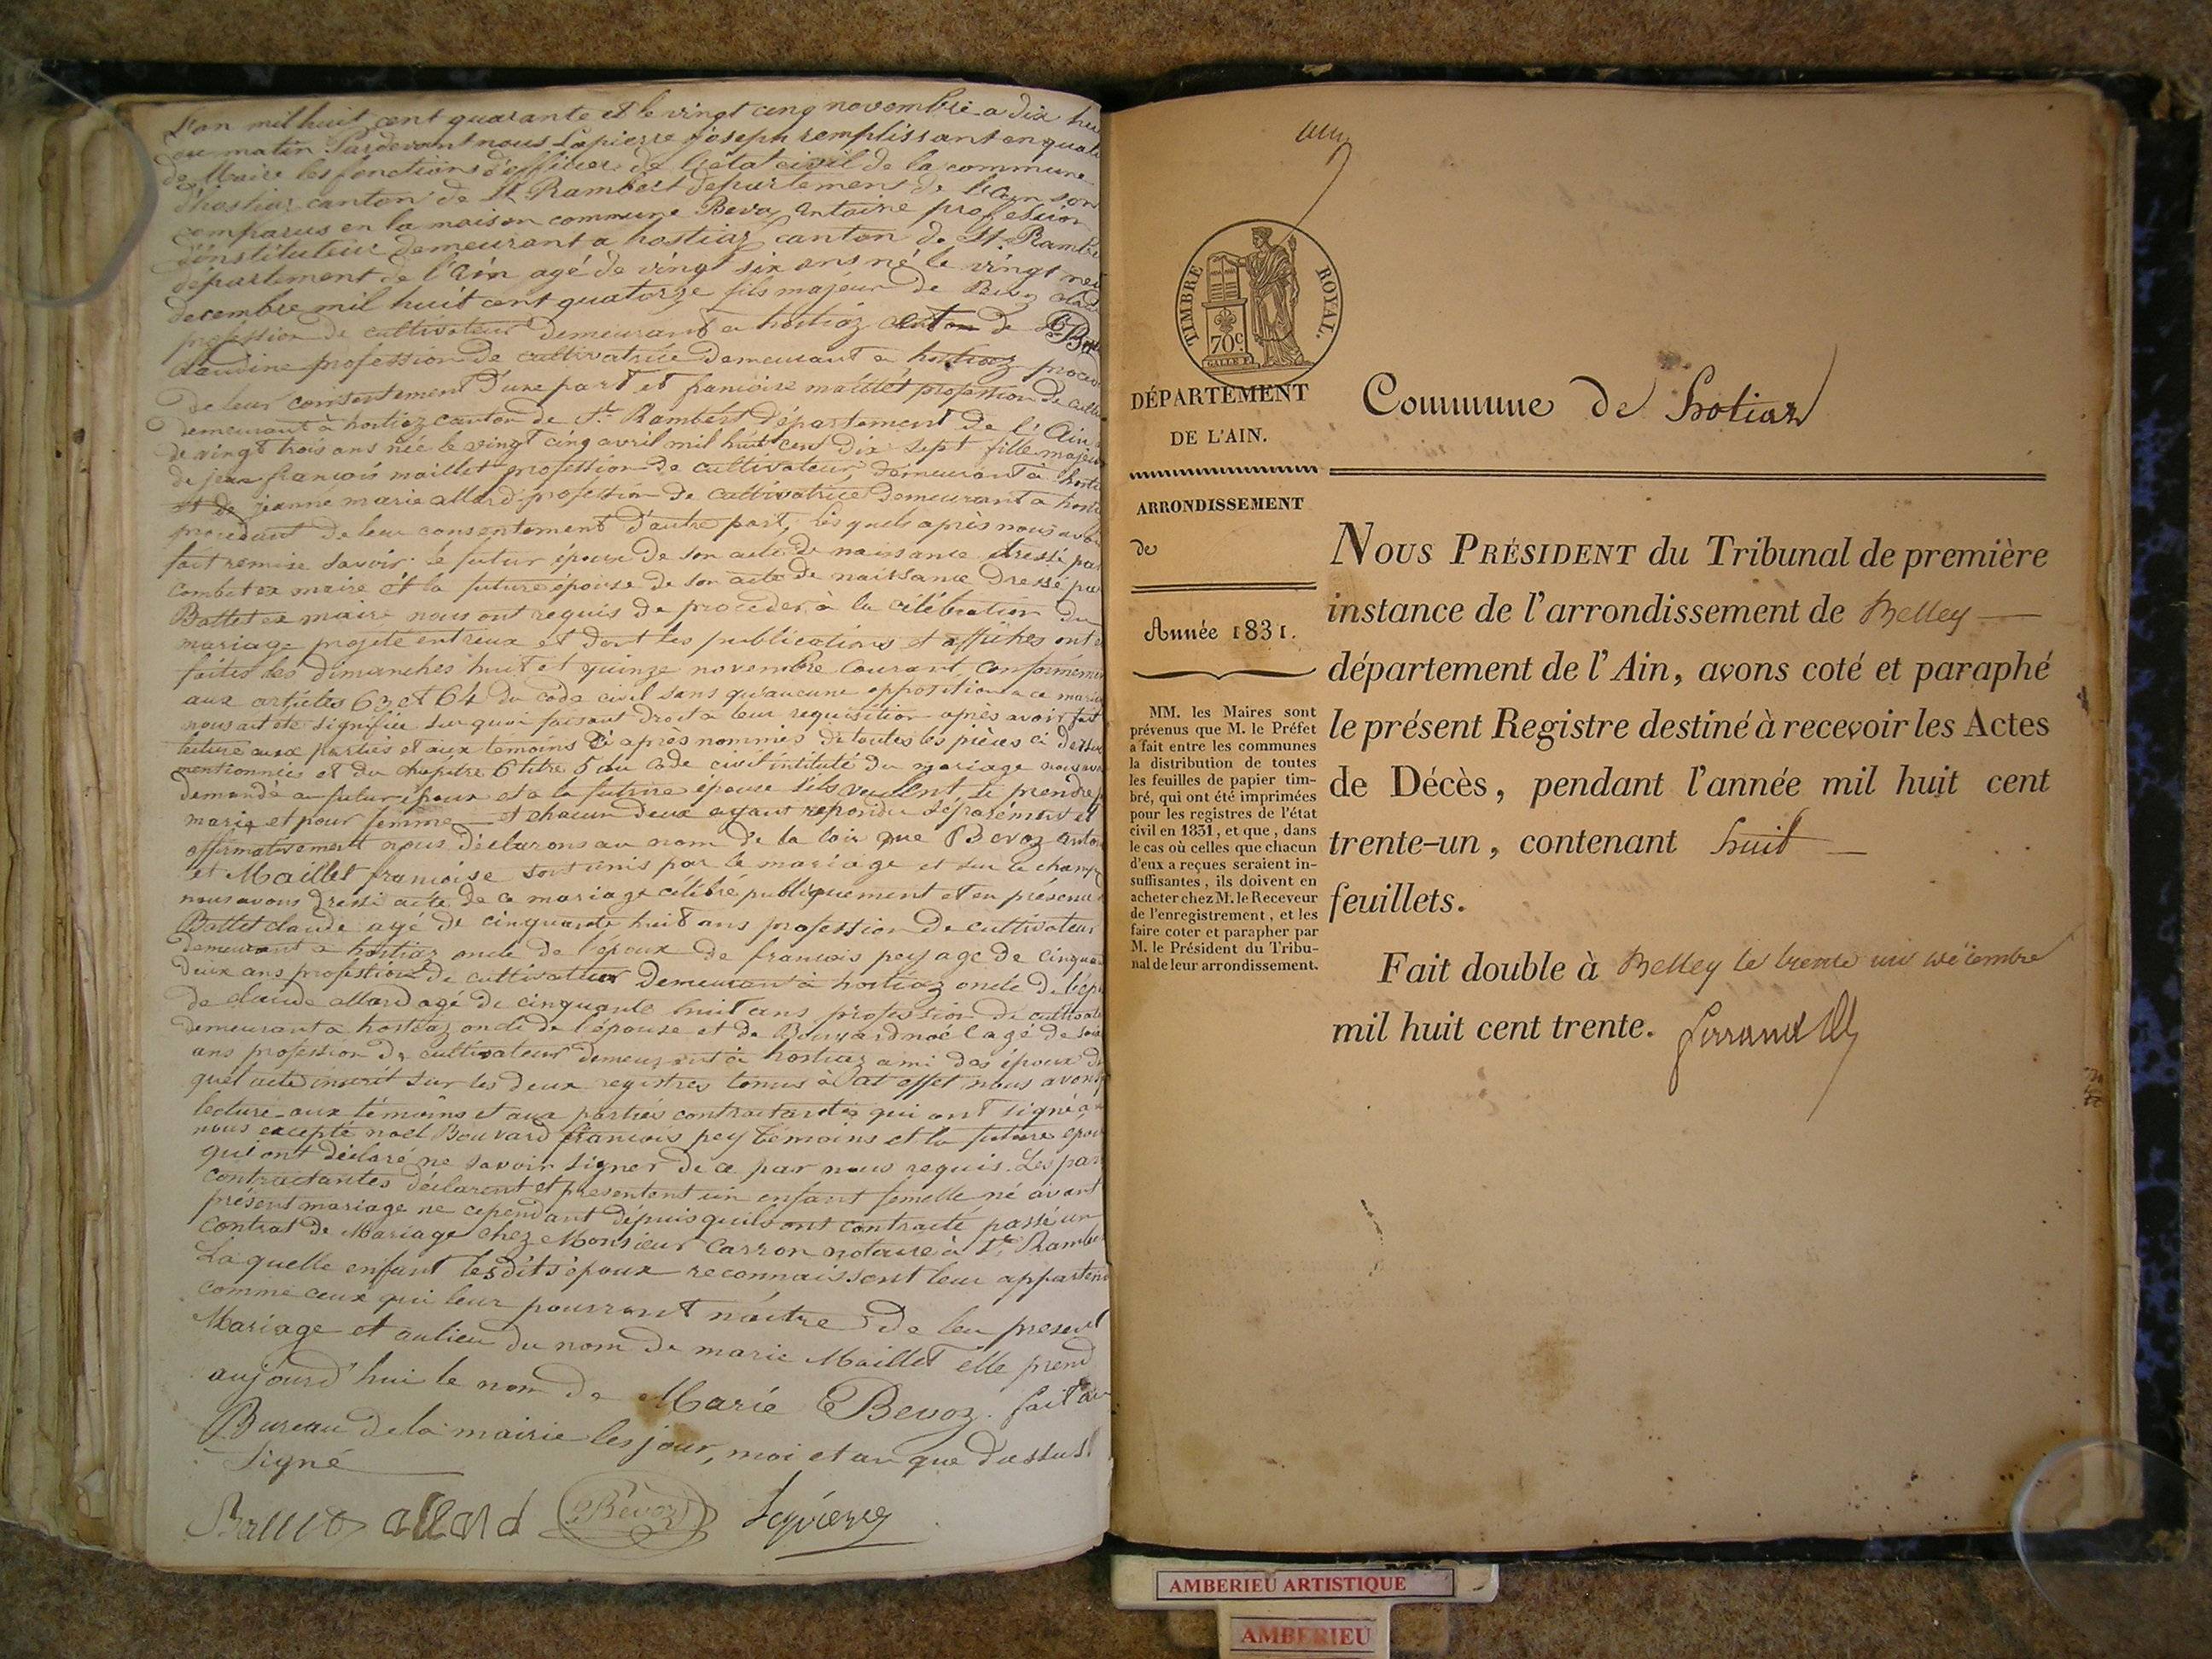 L'an mil huit cent quarante et le vingt cinq novembre a dix heu
du matin Pardevant nous Lapierre joseph remplissant en quali
de Maire les fonctions d'officier de l'état civil de la commune
d'hostiaz canton de St Rambert departement de l'ain son
comparus en la maison commune Bevoz Antoine profession
d'instituteur demeurant a hostiaz canton de St. Rambe
département de l'Ain agé de vingt six ans né le vingt neu
decembre mil huit cent quatorze fils majeur de Bevoz
profession de cultivateur demeurant a hostiaz et de
Claudine profession de cultivatrice demeurant a hostiaz proced
de leur consentement d'une part et francoise maillet profession de culti
demeurant à hostiaz canton de St. Rambert département de l'Ain
de vingt trois ans née le vingt cinq avril mil huit cent dix sept fille majeur
de jean francois maillet profession de cultivateur demeurant à hosti
et de jeanne marie allard profession de cultivatrice demeurant a hosti
procedant de leur consentement d'autre part, les quels après nous avoir
fait remise savoir le futur époux de son acte de naissance dressé par
Combet ex maire et la future épouse de son acte de naissance dressé par
Ballet ex maire nous ont requis de proceder à la célébration du
mariage projeté entreux et dont les publications et affiches ont é
faites les dimanches huit et quinze novembre courant, conformém
aux articles 63 et 64 du code civil sans qu'aucune opposition a ce maria
nous ait été signifiée sur quoi faisant droit a leur requisition après avoir fait
lecture aux parties et aux témoins ci après nommés de toutes les pièces ci dessus
mentionnées et du chapitre 6 titre 5 du code civil intitulé du mariage nous avo
demandé au futur époux et a la future épouse s'ils veulent se prendre p
mari et pour femme et chacun deux ayant repondu séparément et
affirmativement nous déclarons au nom de la loi que Bevoz Anton
et Maillet francoise sont unis par le mariage et sur le champ
nous avons dressé acte de ce mariage célébré publiquement et en présence
Ballet claude agé de cinquante huit ans profession de cultivateur
demeurant a hostiaz oncle de l'epoux de francois pey agé de cinquan
deux ans profession de cultivateur demeurant à hostiaz oncle de l'ép
de claude allard agé de cinquante huit ans profession de cultivate
demeurant a hostiaz oncle de l'épouse et de Bouvard noël agé de soix
ans profession de cultivateur demeurant à hostiaz ami des époux du
quel acte inscrit sur les deux registres tenus à cet effet nous avons f
lecture aux témoins et aux parties contractantes qui ont signé av
nous excepté noel Bouvard francois pey témoins et la future épou
qui ont déclaré ne savoir signer de ce par nous requis. Les par
contractantes déclarent et présentent un enfant femelle né avant
présent mariage ne cependant depuis quils ont contracté passé un
contrat de Mariage chez Monsieur Carron notaire à St Rambe
La quelle enfant lesdits époux reconnaissent leur apparteni
comme ceux qui leur pourront naître de leur present
Mariage et aulieu du nom de marie Maillet elle prend
aujourd'hui le nom de Marie Bevoz. fait au
Bureau de la mairie les jour, moi et an que dessus
Signé
Ballet allard Bevoz Lapierre
TIMBRE ROYAL.
70 c.
DÉPARTEMENT
DE L'AIN.
ARRONDISSEMENT
de
Année 1831.
MM. les Maires sont
prévenus que M. le Préfet
a fait entre les communes
la distribution de toutes
les feuilles de papier tim-
bré, qui ont été imprimées
pour les registres de l'état
civil en 1831, et que, dans
le cas où celles que chacun
d'eux a reçues seraient in-
suffisantes, ils doivent en
acheter chez M. le Receveur
de l'enregistrement, et les
faire coter et parapher par
M. le Président du Tribu-
nal de leur arrondissement.
Commune de hotiaz
NOUS PRÉSIDENT du Tribunal de première
instance de l'arrondissement de Belley
département de l'Ain, avons coté et paraphé
le présent Registre destiné à recevoir les Actes
de Décès, pendant l'année mil huit cent
trente-un, contenant huit
feuillets.
Fait double à Belley le trente un décembre
mil huit cent trente.
AMBERIEU ARTISTIQUE
AMBERIEU